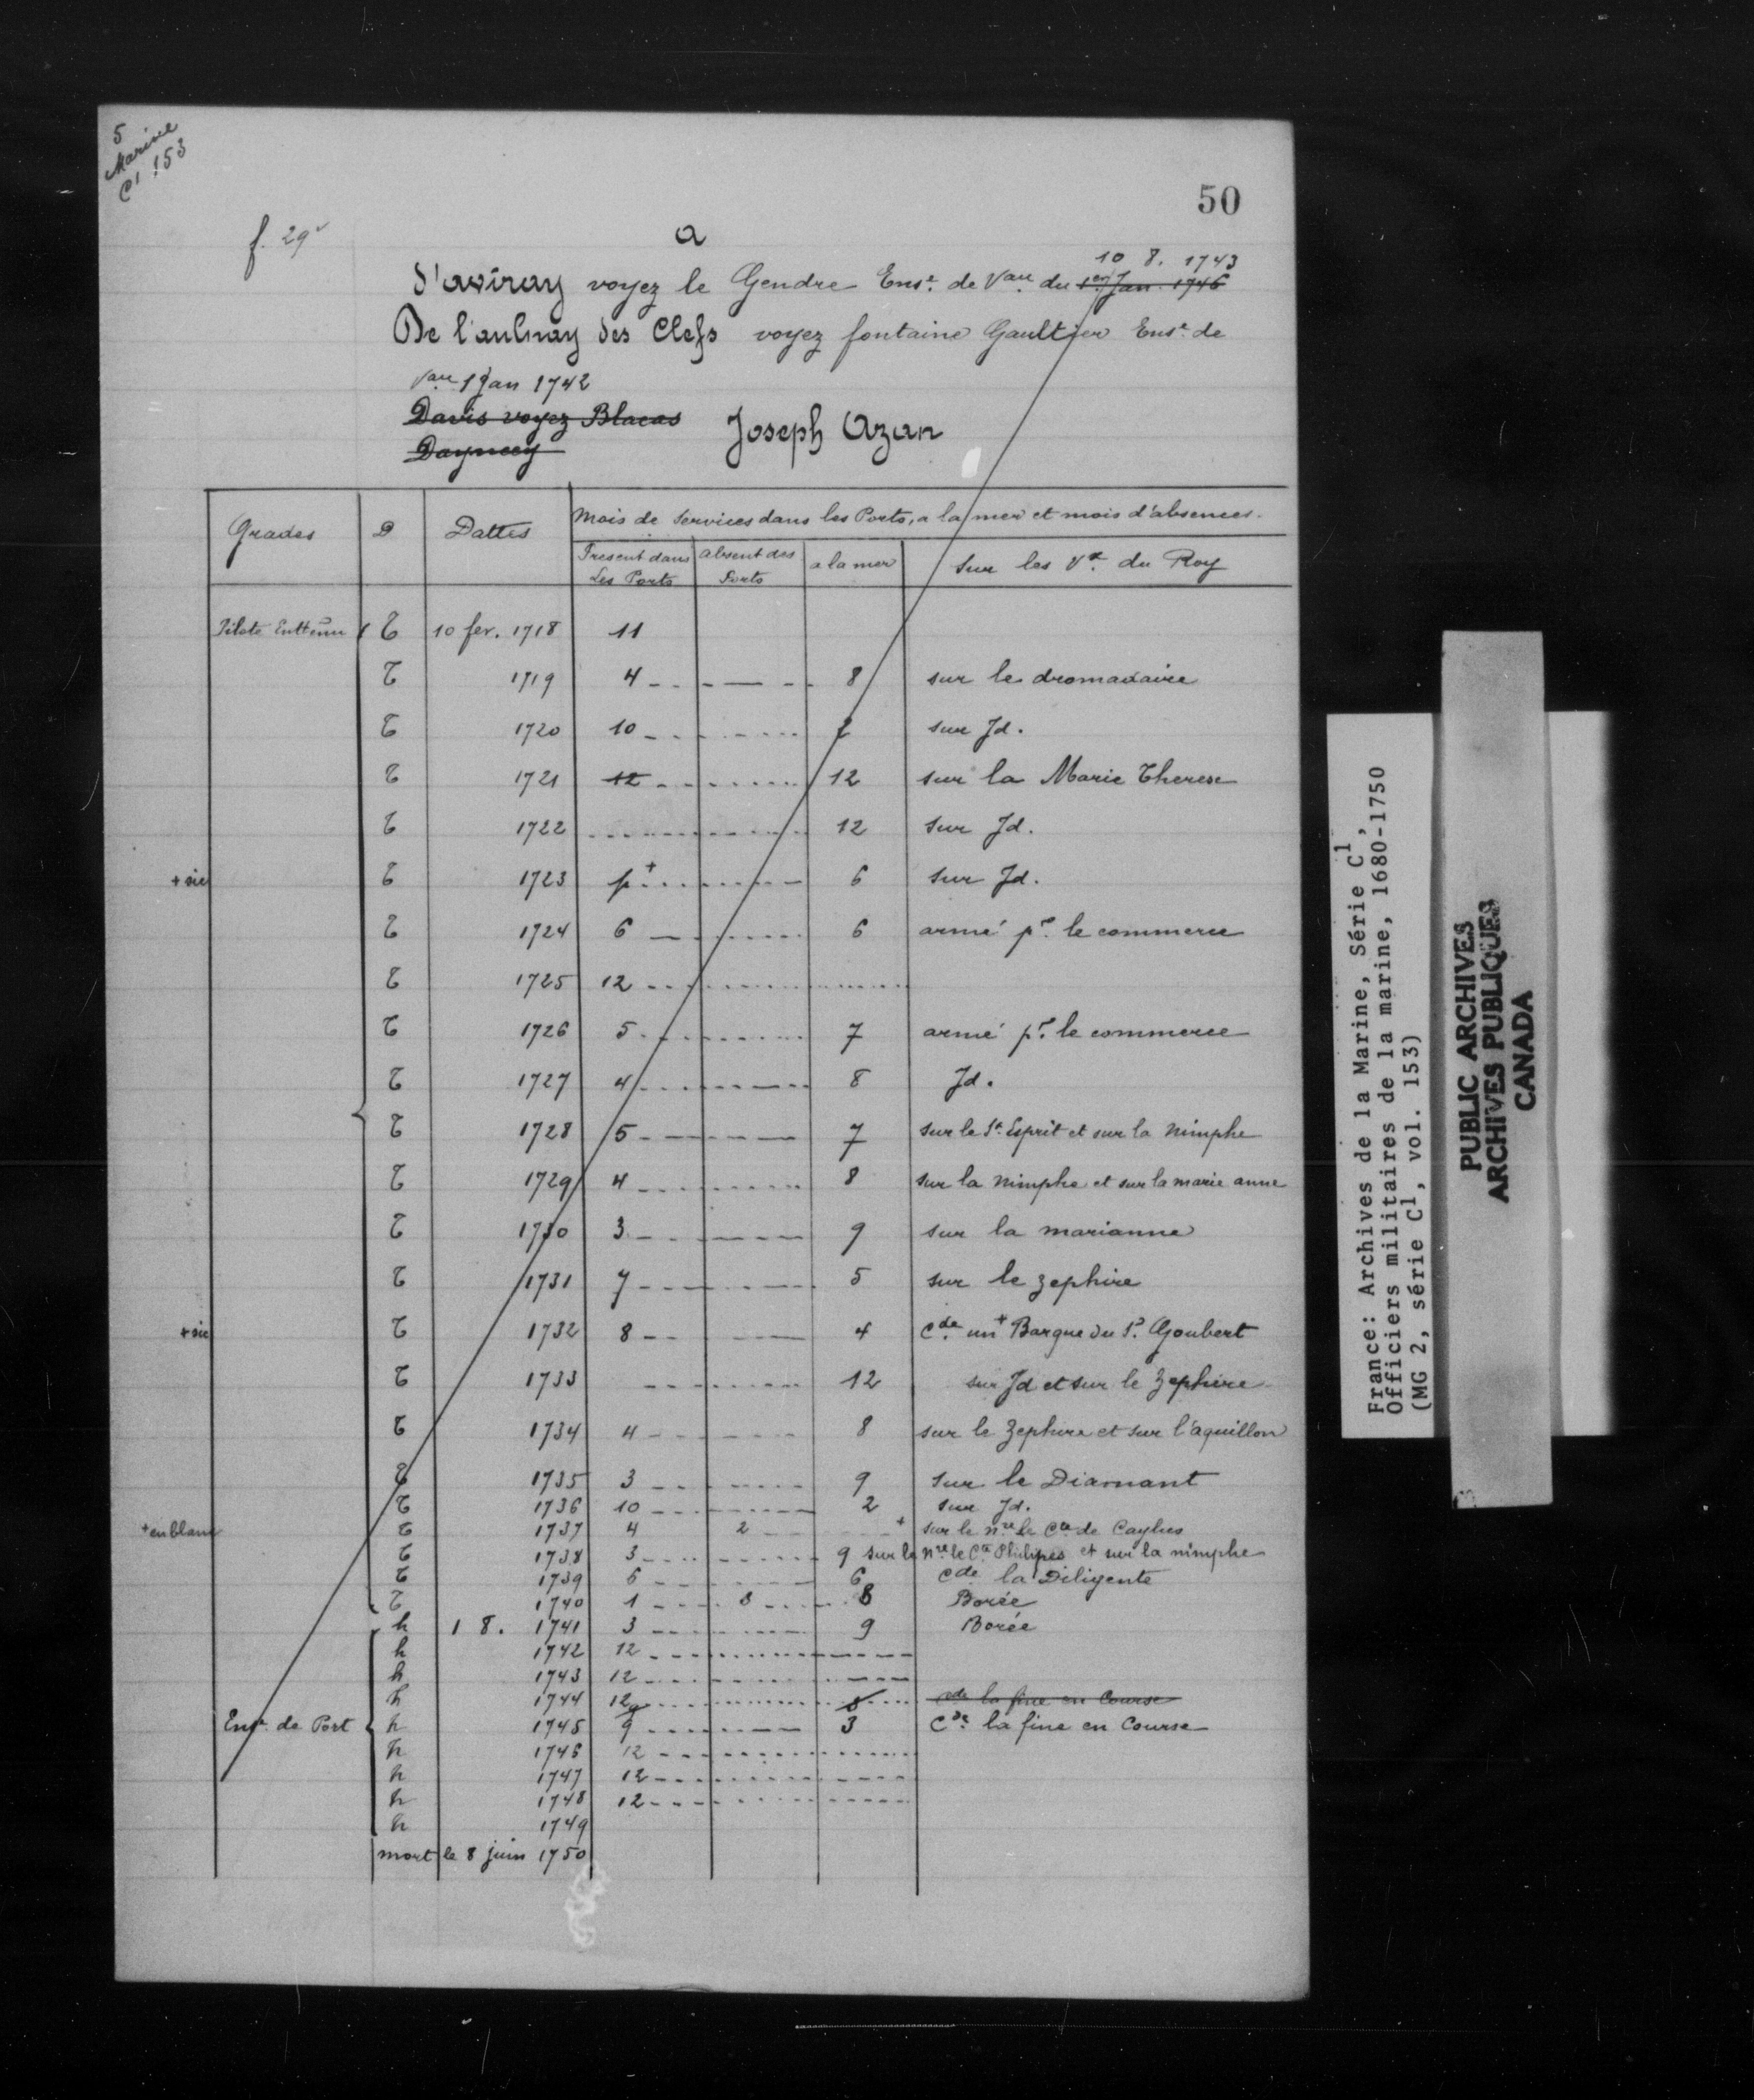 5
Marine
C1 153
50
f. 29v
a
10 8. 1743
D'aviray voyez le Gendre Ense. de Vau. du 1er Jan 1746
De l'aulnay des Clefs voyez fontaine Gaultier Ense. de
Vau 1 Jan 1742
Davis voyez Blacas
Joseph Azan
Grades D Dattes Mois de Services dans les Ports, a la mer et mois d'absences.
Present dans Les Ports absent des Ports a la mer Sur les Vx. du Roy
Pilote Enttenu T 10 fev. 1718 11
T 1719 4 8 sur le dromadaire
T 1720 10 2 sur Jd.
T 1721 12 12 sur la Marie Therese
T 1722 12 Sur Jd.
+ sic T 1723 p+ 6 Sur Jd.
T 1724 6 6 armé pr. le commerce
T 1725 12
T 1726 5 7 armé pr. le commerce
T 1727 4 8 Jd.
T 1728 5 7 sur le St. Esprit et sur la nimphe
T 1729 4 8 sur la nimphe et sur la marie anne
T 1730 3 9 sur la marianne
T 1731 7 5 sur le zephire
+ sic T 1732 8 4 Cde un+ Barque du Sr. Goubert
T 1733 12 sur Jd et sur le Zephire
T 1734 4 8 sur le Zephire et sur l'aquillon
T 1735 3 9 Sur le Diamant
T 1736 10 2 sur Jd.
+ en blanc T 1737 4 2 + sur le nre le Cte de Caylus
T 1738 3 9 sur le nre le Cte Philipes et sur la nimphe
T 1739 6 6 Cde la Diligente
T 1740 1 3 8 Borée
h 1 8. 1741 3 9 Borée
h 1742 12
h 1743 12
h 1744 12 8 cde la fine en Course
Ense. de Port h 1745 9 3 Cde. la fine en Course
h 1746 12
h 1747 12
h 1748 12
h 1749
mort le 8 juin 1750
France: Archives de la Marine, Série C1,
Officiers militaires de la marine, 1680-1750
(MG 2, série C1, vol. 153)
PUBLIC ARCHIVES
ARCHIVES PUBLIQUES
CANADA